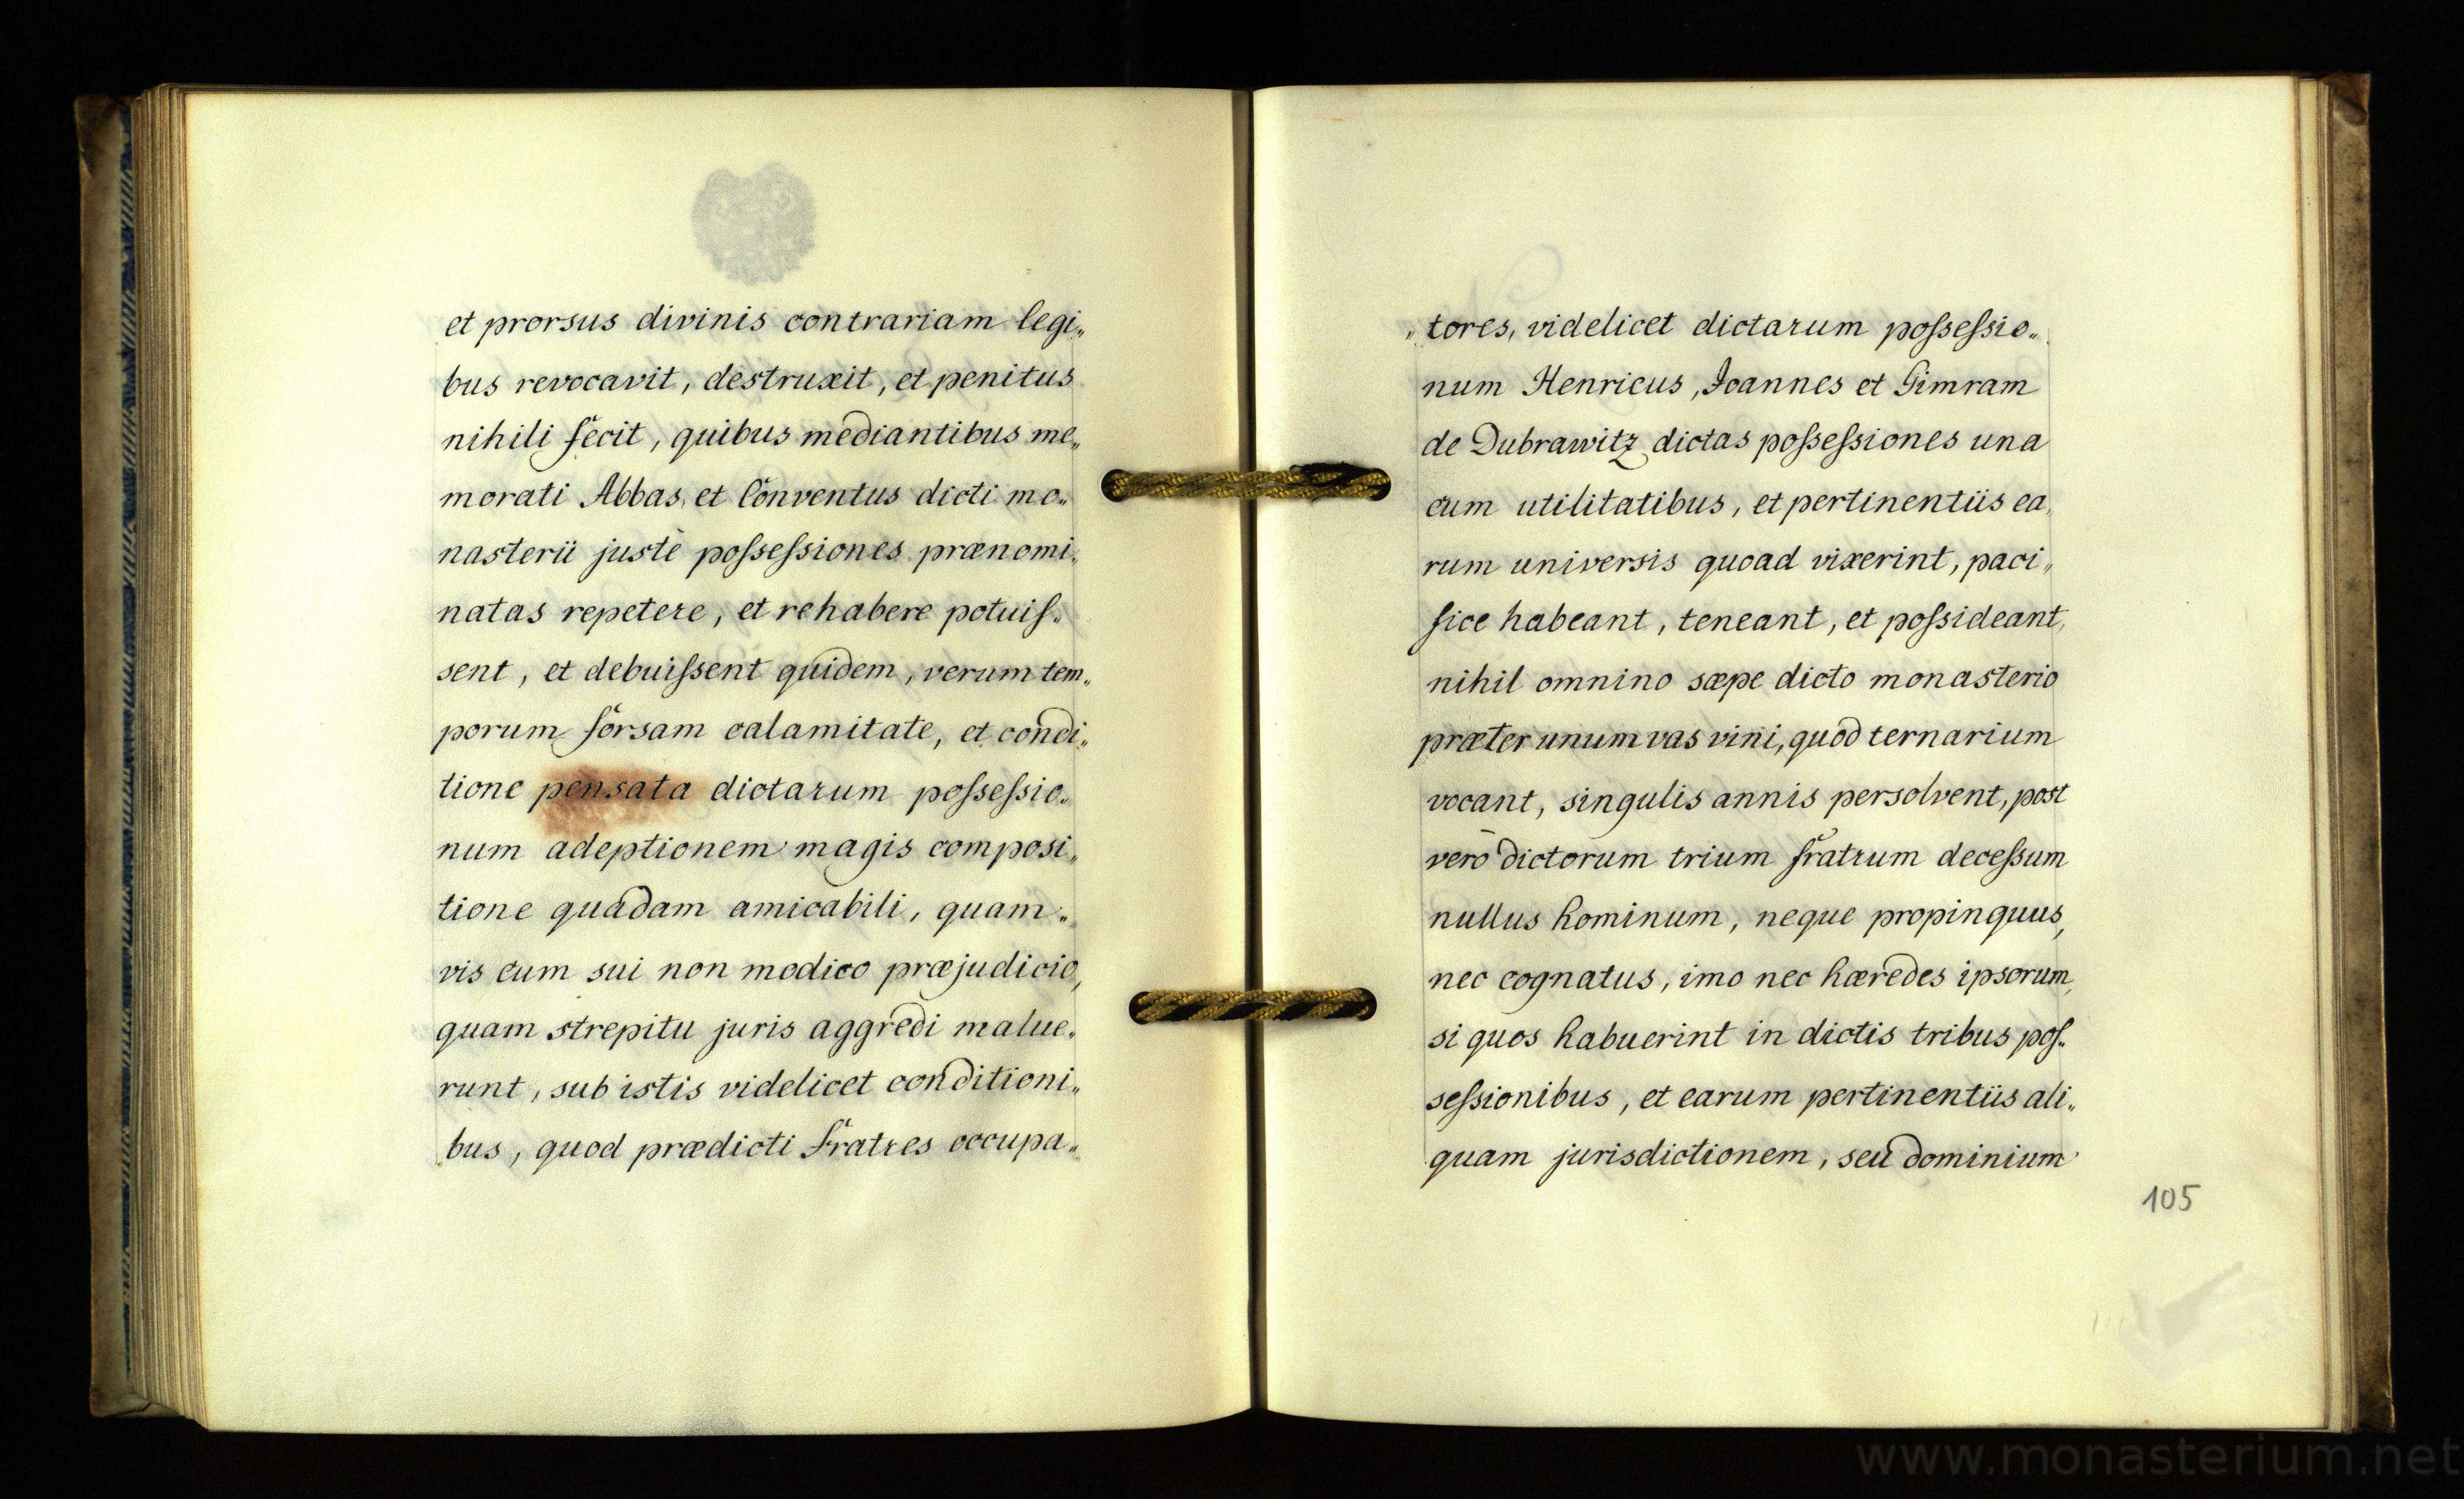 et prorsus divinis contrariam legi„
bus revocavit, destruxit, et penitus
nihili fecit, quibus mediantibus me„
morati Abbas, et Conventus dicti mo„
nasterii justè poſseſsiones prænomi„
natas repetere, et rehabere potuiſ„
sent, et debuiſsent quidem, verum tem„
porum forsam calamitate, et condi„
tione pensata dictarum poſseſsio„
num adeptionem magis composi„
tione quadam amicabili, quam„
vis cum sui non modico præjudicio,
quam strepitu juris aggredi malue„
runt, sub istis videlicet conditioni„
bus, quod prædicti fratres occupa„
„tores, videlicet dictarum poſseſsio„
num Henricus, Joannes et Gimram
de Dubrawitz dictas poſseſsiones una
cum utilitatibus, et pertinentiis ea„
rum universis quoad vixerint, paci„
fice habeant, teneant, et poſsideant,
nihil omnino sæpe dicto monasterio
præter unum vas vini, quod ternarium
vocant, singulis annis persolvent, post
verò dictorum trium fratrum deceſsum
nullus hominum, neque propinquus,
nec cognatus, imo nec hæredes ipsorum,
si quos habuerint in dictis tribus poſ„
seſsionibus, et earum pertinentiis ali„
quam jurisdictionem, seu dominium
105
www.monasterium.net